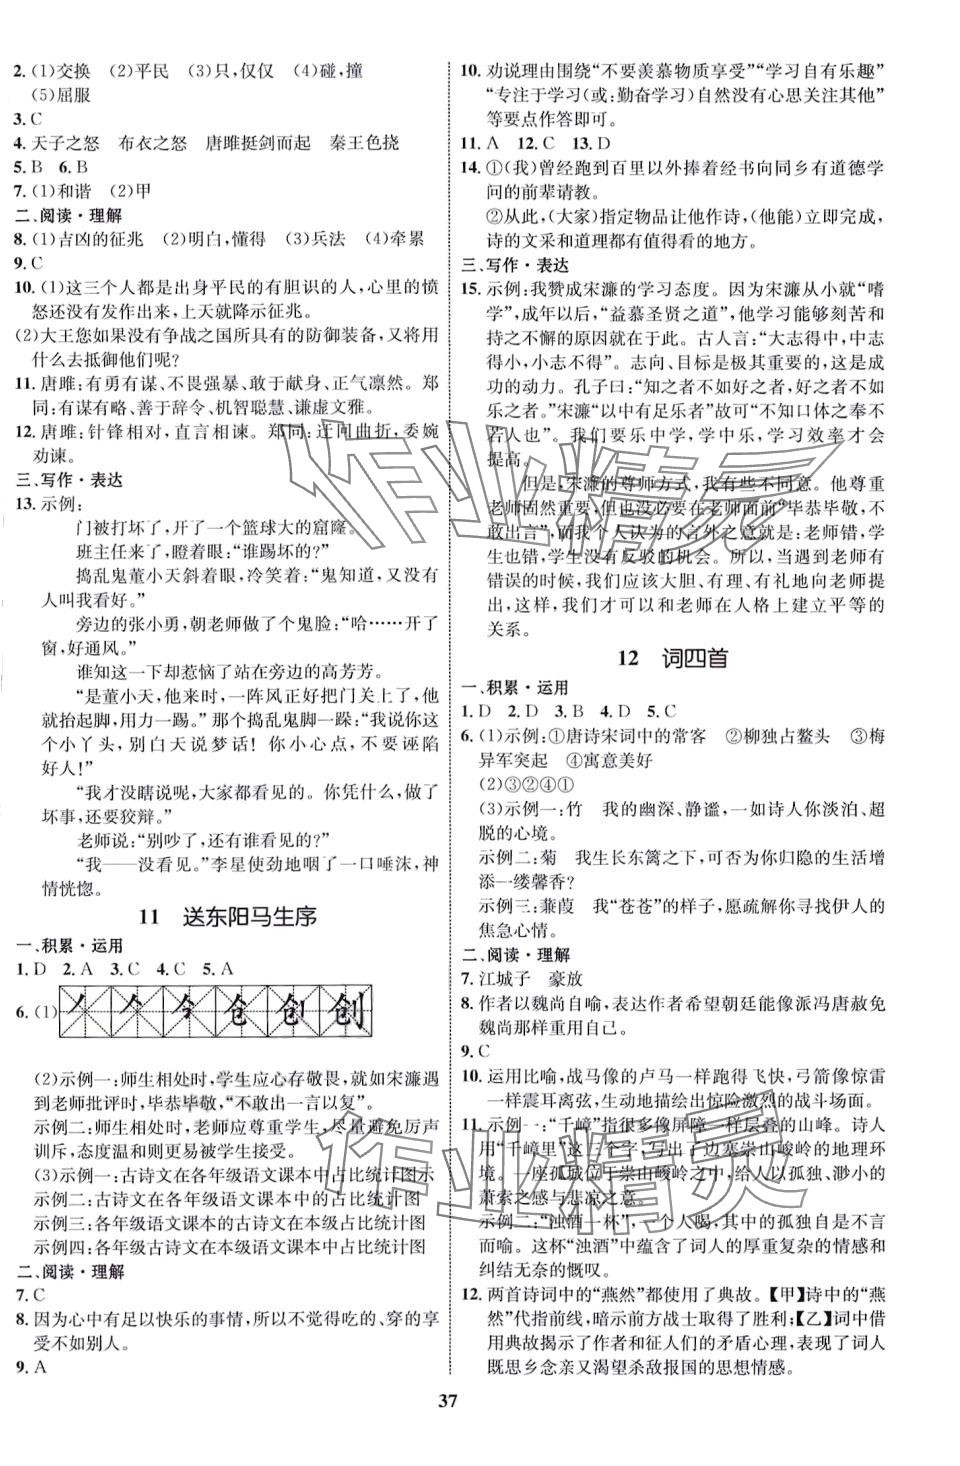 2. (1)交换　(2)平民　(3)只,仅仅　(4)碰,撞
(5)屈服
3. C
4. 天子之怒　布衣之怒　唐雎挺剑而起　秦王色挠
5. B　6. B
7. (1)和谐　(2)甲
二、阅读·理解
8. (1)吉凶的征兆　(2)明白,懂得　(3)兵法　(4)牵累
9. C
10. (1)这三个人都是出身平民的有胆识的人,心里的愤
怒还没有发作出来,上天就降示征兆。
(2)大王您如果没有争战之国所具有的防御装备,又将用
什么去抵御他们呢?
11. 唐雎:有勇有谋、不畏强暴、敢于献身、正气凛然。郑
同:有谋有略、善于辞令、机智聪慧、谦虚文雅。
12. 唐雎:针锋相对,直言相谏。郑同:迂回曲折,委婉
劝谏。
三、写作·表达
13. 示例:
门被打坏了,开了一个篮球大的窟窿。
班主任来了,瞪着眼:“谁踢坏的?”
捣乱鬼董小天斜着眼,冷笑着:“鬼知道,又没
有人叫我看好。”
旁边的张小勇,朝老师做了个鬼脸:“哈……开了
窗,好通风。”
谁知这一下却惹恼了站在旁边的高芳芳。
“是董小天,他来时,一阵风正好把门关上,他
就抬起脚,用力一踢。”那个捣乱鬼脚一跺:“你
这个小丫头,别白天说梦话!你小心点,不要诬陷
好人!”
“我才没瞎说呢,大家都看见的。你凭什么,做了
坏事,还要狡辩。”
老师说:“别吵了,还有谁看见的?”
“我——没看见。”李星使劲地咽了一口唾沫,神
情恍惚。
11　送东阳马生序
一、积累·运用
1. D　2. A　3. C　4. C　5. A
6. (1)
创
(2)示例一:师生相处时,学生应心存敬畏,就如宋濂遇
到老师批评时,毕恭毕敬,“不敢出一言以复”。
示例二:师生相处中,老师应尊重学生,尽量避免厉声
训斥,态度温和则更易被学生接受。
(3)示例一:古诗文在各年级语文课本中占比统计图示
示例二:古诗文在各年级语文课本中的占比统计图
示例三:各年级语文课本的古诗文在本级占比统计图
示例四:各年级古诗文在本级语文课本中占比统计图
二、阅读·理解
7. C
8. 因为心中有足以快乐的事情,所以不觉得吃的、穿的享
受不如别人。
9. A
10. 劝说理由围绕“不要羡慕物质享受”“学习自有乐趣”
“专注于学习(或:勤奋学习)自然没有心思关注其他”
等要点作答即可。
11. A　12. C　13. D
14. ①(我)曾经跑到百里以外捧着经书向同乡有道德学
问的前辈请教。
②从此,(大家)指定物品让他作诗,(他能)立即完成,
诗的文采和道理都有值得看的地方。
三、写作·表达
15. 示例:我赞成宋濂的学习态度。因为宋濂从小就“嗜
学”,成年以后,“益慕圣贤之道”,他学习能够刻苦和
持之不懈的原因就在于此。古人言:“大志得中,中志
得小,小志不得”。志向、目标是极其重要的,这是成
功的动力。孔子曰:“知之者不如好之者,好之者不如
乐之者。”宋濂“以中有足乐者”故可“不知口体之奉不
若人也”。我们要乐中学,学中乐,学习效率才会
提高。
但是,宋濂的尊师方式,我有些不同意。他尊
重老师固然重要,但也没必要在老师面前“毕恭毕敬,不
敢出言”,我个人认为的言外之意就是:老师错,学
生也错,学生没有反驳的机会。所以,当老师有
错误的时候,我们应该大胆、有理、有礼地向老师提
出,这样,我们才可以和老师在人格上建立平等的
关系。
12　词四首
一、积累·运用
1. D　2. D　3. B　4. D　5. C
6. (1)示例:①唐诗宋词中的常客　②柳独占鳌头　③梅
异军突起　④寓意美好
(2)③②④①
(3)示例一:竹　我的幽深、静谧,一如诗人你淡泊、超
脱的心境。
示例二:菊　我生长东篱之下,可否为你归隐的生活增
添一缕馨香?
示例三:蒹葭　我“苍苍”的样子,愿疏解你寻而不得的
焦急心情。
二、阅读·理解
7. 江城子　豪放
8. 作者以魏尚自喻,表达作者希望朝廷能像派冯唐赦免
魏尚那样重用自己。
9. C
10. 运用比喻,战马像的卢马一样跑得飞快,弓箭像惊雷
一样震耳离弦,生动地描绘出惊险激烈的战斗场面。
11. 示例一:“千嶂”指很多像屏障一样层叠的山峰。诗人
用“千嶂里”这三个字,写出了边塞崇山峻岭的地理环
境。一座孤城位于崇山峻岭之中,给人以孤独、渺小的
萧索之感与悲凉之意。
示例二:“浊酒一杯”,一个人喝,其中的孤独自是不言
而喻。这杯“浊酒”中蕴含了词人的厚重复杂的情感和
纠结无奈的慨叹。
12. 两首诗词中的“燕然”都使用了典故。【甲】诗中的“燕
然”代指前线,暗示前方战士取得了胜利;【乙】词中借
用典故揭示了作者和征人们的矛盾心理,表现了词人
既思乡念亲又渴望杀敌报国的思想情感。
37
作业精灵
作业精灵